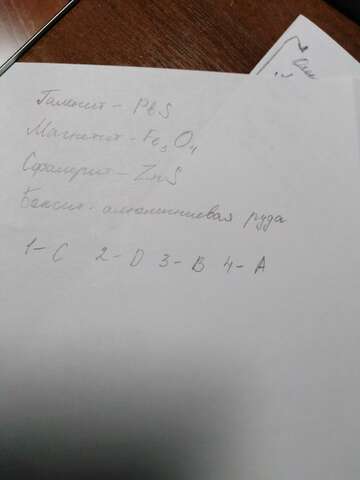 Галенит - PbS
Магнетит - Fe3O4
Сфалерит - ZnS
Боксит - алюминиевая руда
1 - C 2 - D 3 - B 4 - A